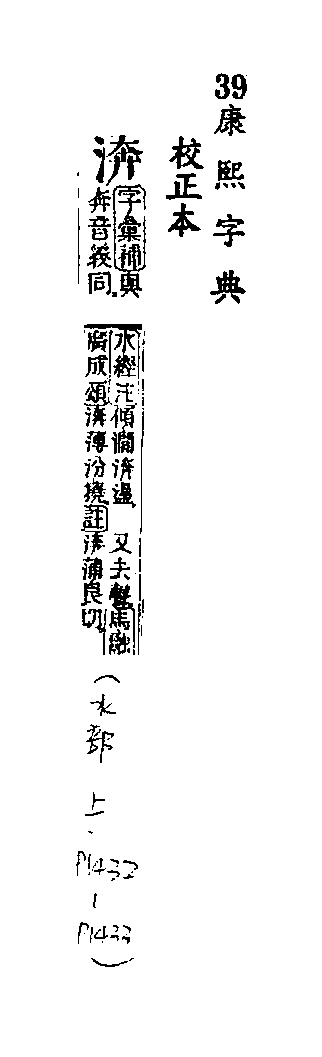 39
康熙字典
校正本
渀
字彙補與
奔音義同
水經注傾瀾渀盪 又去聲馬融
廣成頌渀薄汾撓註渀蒲艮切
(水部 上.P1432-P1433)